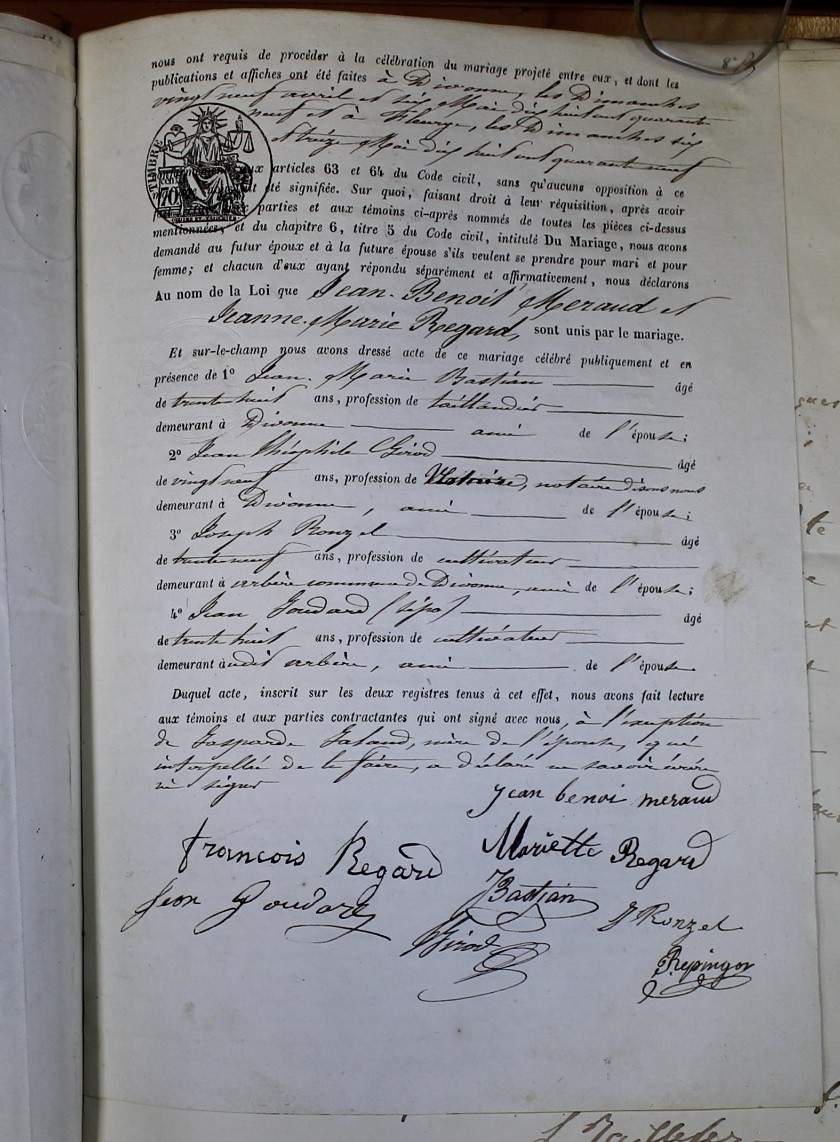 nous ont requis de procéder à la célébration du mariage projeté entre eux, et dont les
publications et affiches ont été faites à Divonne, les Dimanches
vingt neuf avril et six Mai dix huit cent quarante
neuf et à les Dimanches six
et treize Mai dix huit cent quarante neuf
TIMBRE
70
aux articles 63 et 64 du Code civil, sans qu'aucune opposition à ce
été signifiée. Sur quoi, faisant droit à leur réquisition, après avoir
parties et aux témoins ci-après nommés de toutes les pièces ci-dessus
mentionnées, et du chapitre 6, titre 5 du Code civil, intitulé Du Mariage, nous avons
demandé au futur époux et à la future épouse s'ils veulent se prendre pour mari et pour
femme; et chacun d'eux ayant répondu séparément et affirmativement, nous déclarons
Au nom de la Loi que Jean-Benoit Meraud et
Jeanne-Marie Regard, sont unis par le mariage.
Et sur-le-champ nous avons dressé acte de ce mariage célébré publiquement et en
présence de 1º Jean-Marie Bastian âgé
de trente huit ans, profession de taillandier
demeurant à Divonne ami de l'épouse;
2º Jean Théophile Girod âgé
de vingt neuf ans, profession de notaire disons nous
demeurant à Divonne, ami de l'épouse;
3º Joseph Ronzel âgé
de trente neuf ans, profession de cultivateur
demeurant à arbère commune de Divonne, ami de l'épouse;
4º Jean Goudard âgé
de trente huit ans, profession de cultivateur
demeurant audit arbère, ami de l'épouse
Duquel acte, inscrit sur les deux registres tenus à cet effet, nous avons fait lecture
aux témoins et aux parties contractantes qui ont signé avec nous, à l'exception
de Gasparde mère de l'épouse, qui
interpellée de le faire, a déclaré ne savoir écrire
ni signer
jean benoi meraud
françois Regard Mariette Regard
Jean Goudard Bastian J Ronzel
Girod